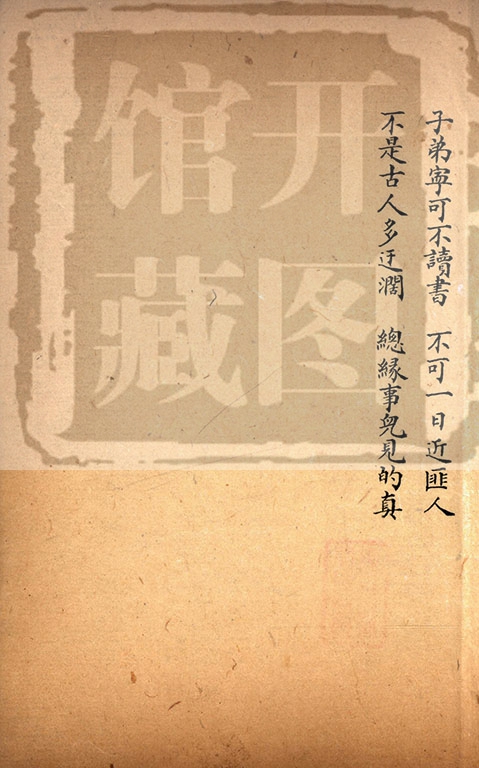 子弟寧可不讀書　不可一日近匪人
不是古人多迂濶　總緣事皃見的真
开图
馆藏